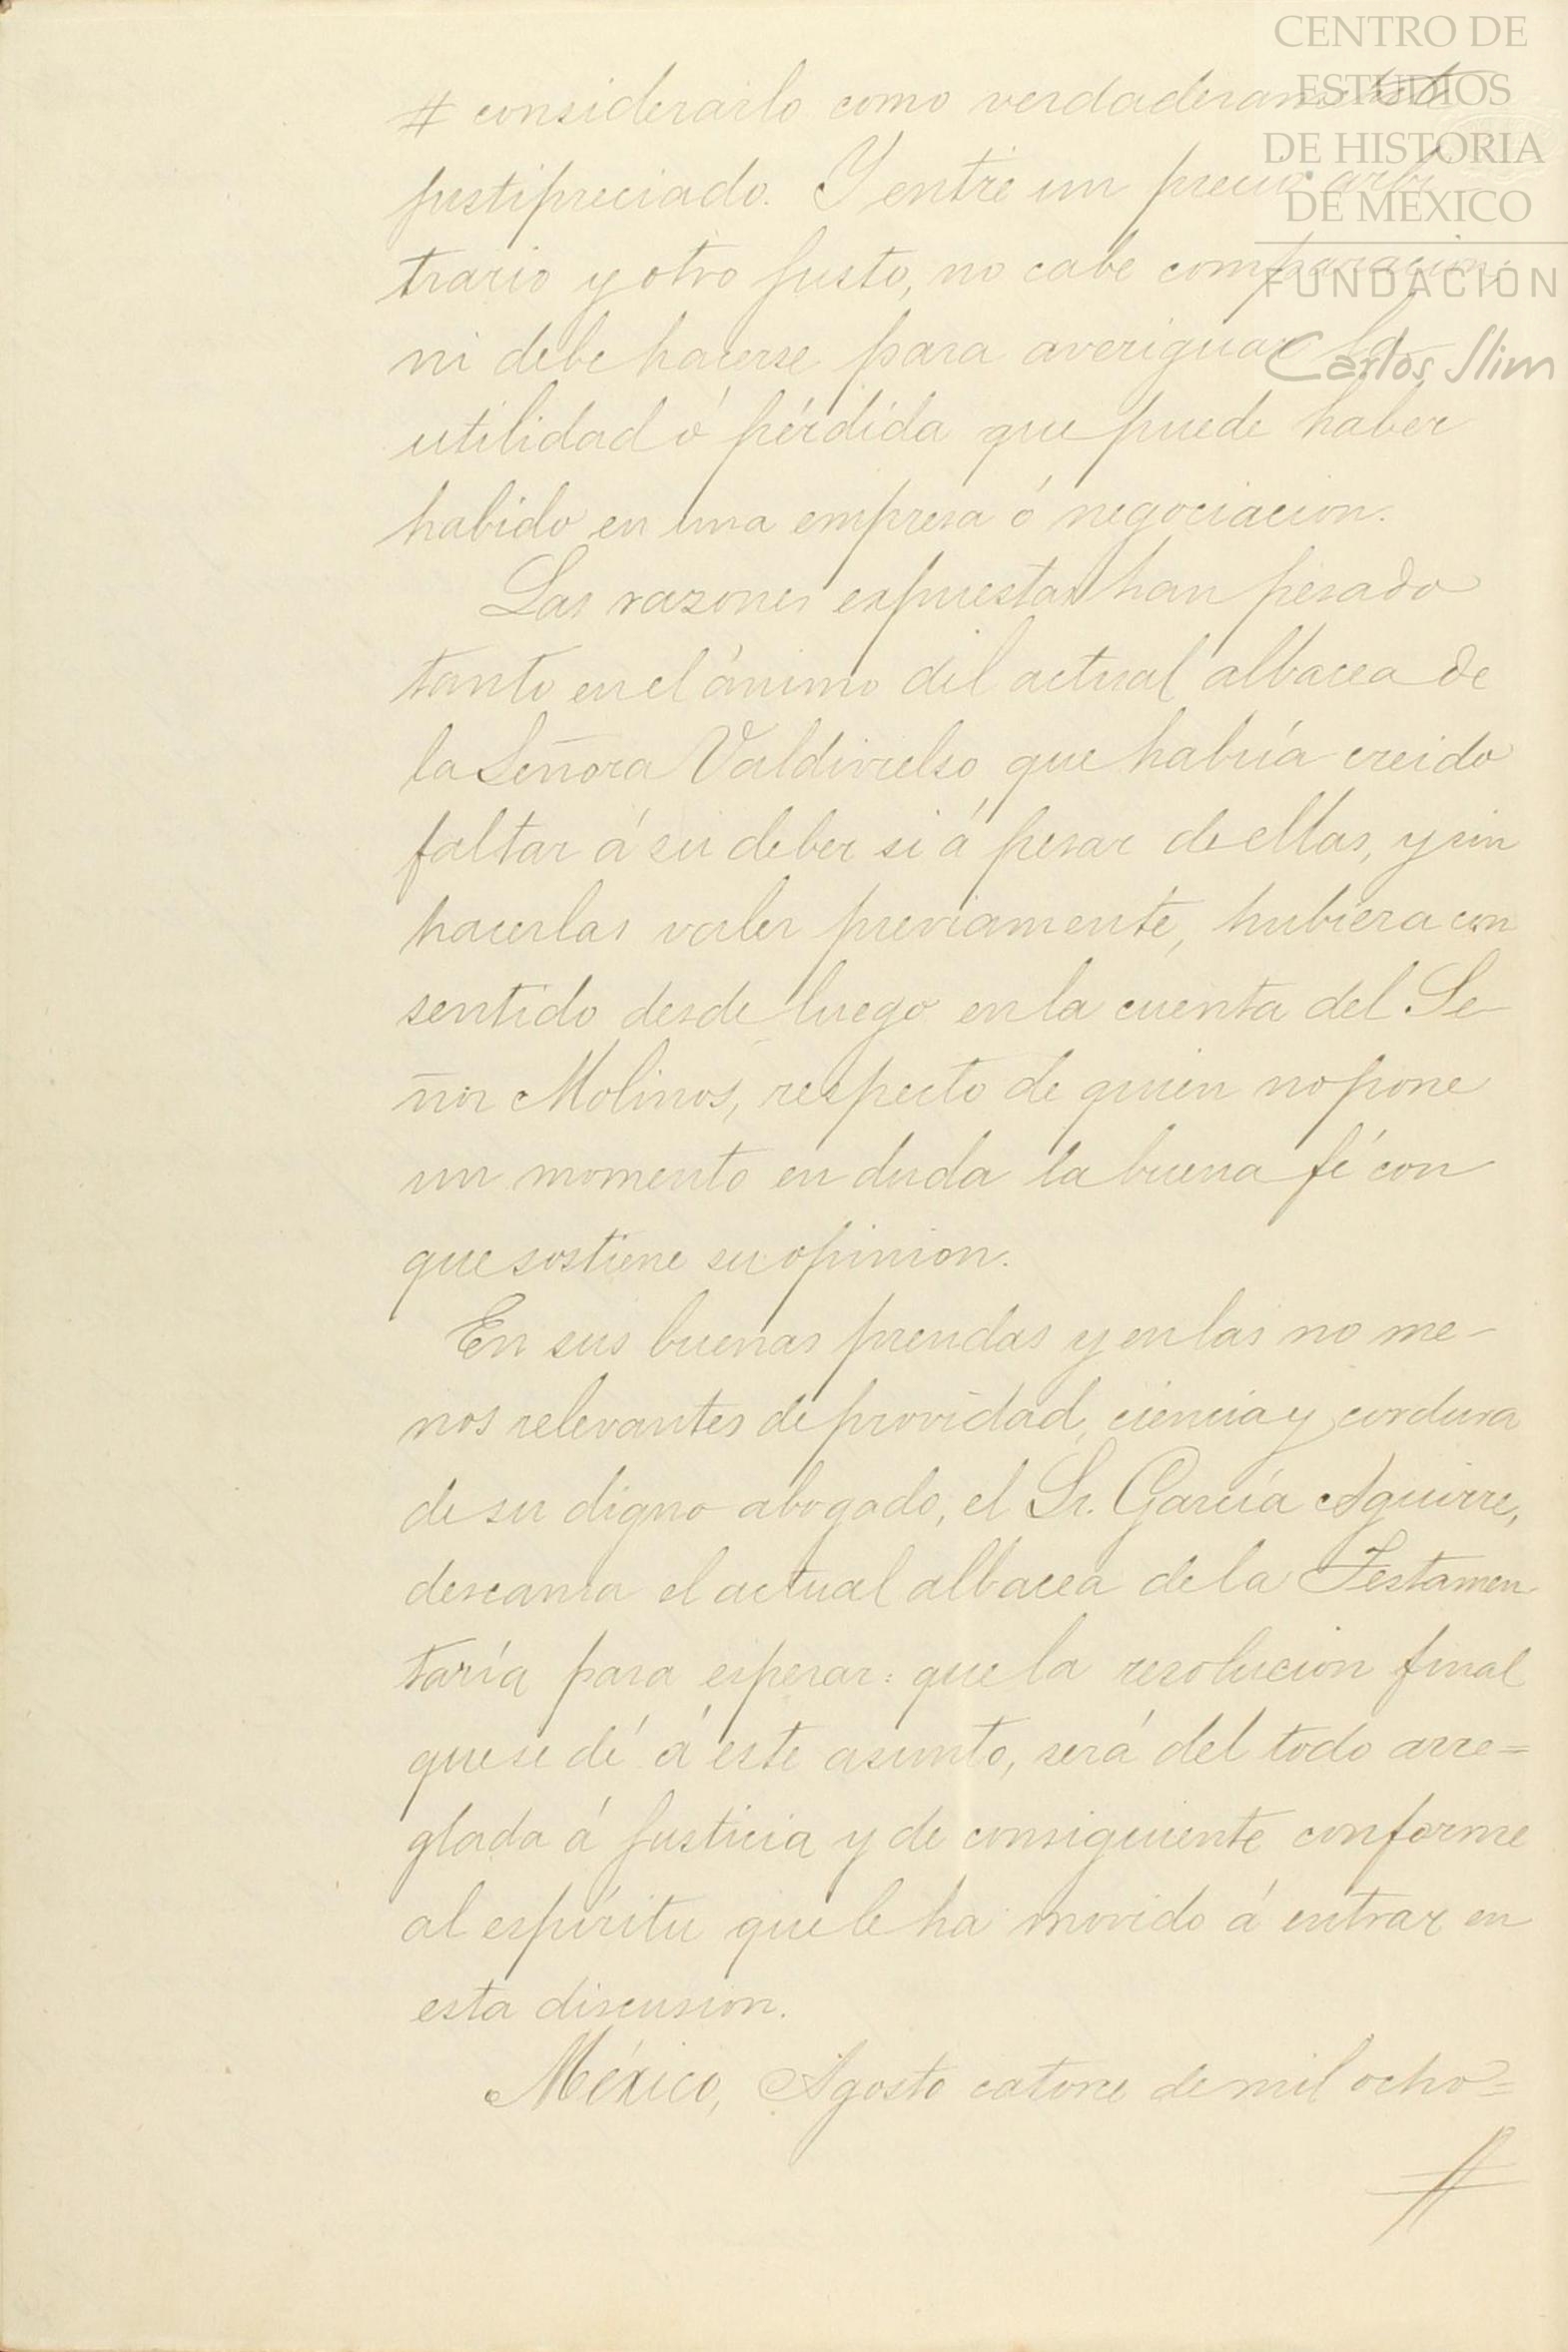 CENTRO DE
ESTUDIOS
DE HISTORIA
DE MEXICO
FUNDACIÓN
Carlos Slim
# considerarlo como verdaderamente
justipreciado. Y entre un precio arbi
trario y otro justo, no cabe comparacion,
ni debe hacerse para averiguar la
utilidad ó pérdida que puede haber
habido en una empresa ó negociacion.
Las razones expuestas han pesado
tanto en el ánimo del actual albacea de
la Señora Valdivielso que habría creido
faltar á su deber si á pesar de ellas, y sin
hacerlas valer previamente, hubiera con
sentido desde luego en la cuenta del Se-
ñor Molinos, respecto de quien no pone
un momento en duda la buena fé con
que sostiene su opinion.
En sus buenas prendas y en las no me-
nos relevantes de providad, ciencia y cordura
de su digno abogado, el Sr. García Aguirre,
descansa el actual albacea de la Testamen
taría para esperar: que la resolucion final
que se dé á este asunto, será del todo arre=
glada á justicia y de consiguiente conforme
al espíritu que le ha movido á entrar en
esta discusion.
México, Agosto catorce de mil ocho=
#